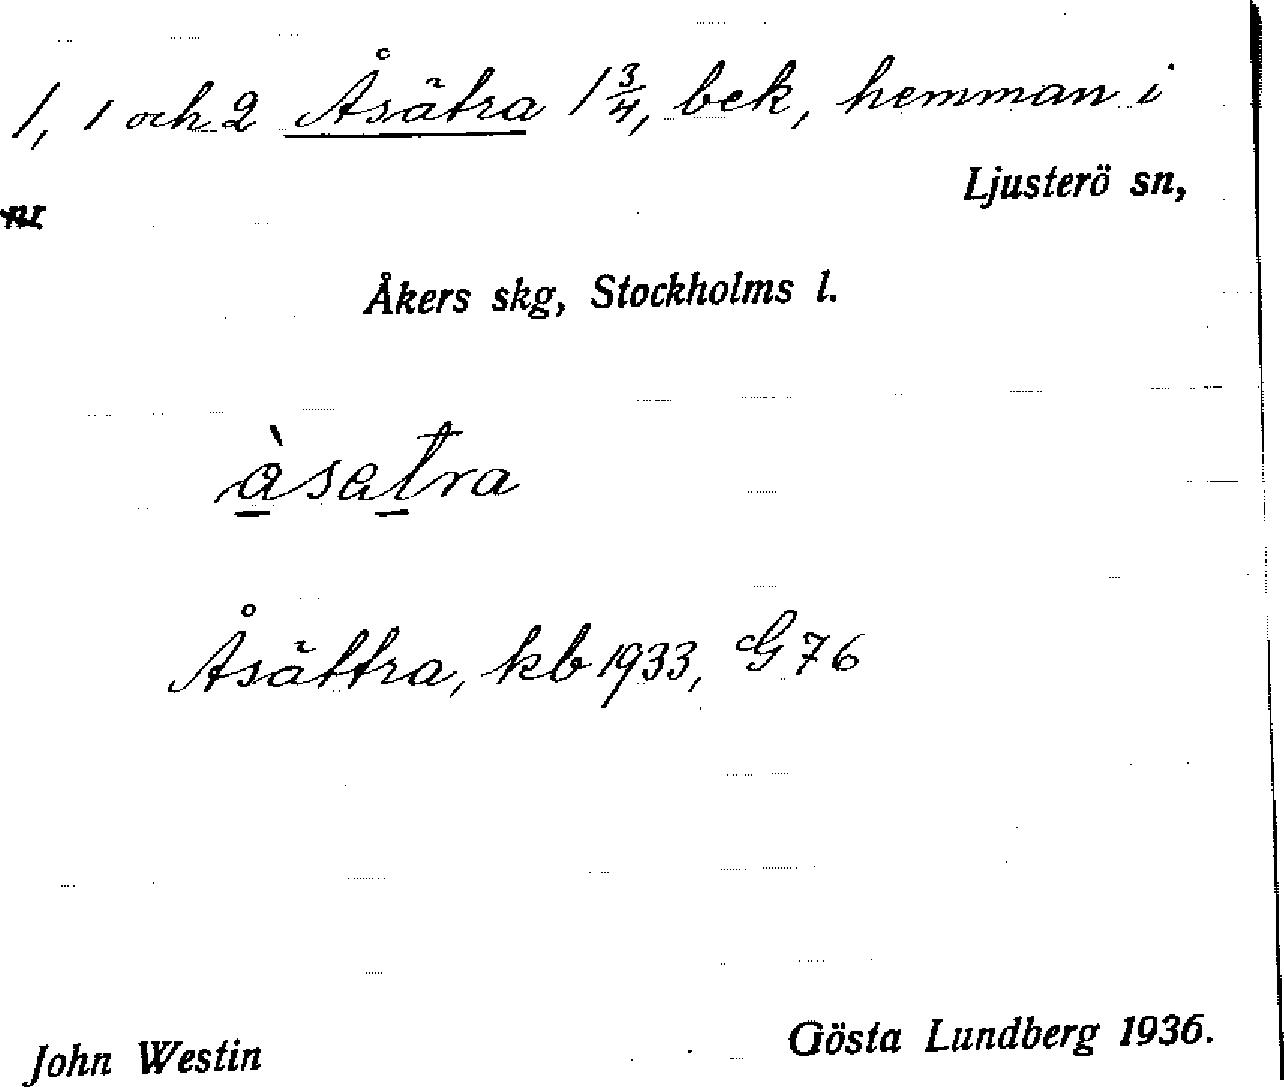 1, 1 och 2 Åsätra 1 3/4, bek, hemman i
Ljusterö sn,
nr
Åkers skg, Stockholms l.
àsatra
Åsättra, kb 1933, G 76
John Westin
Gösta Lundberg 1936.